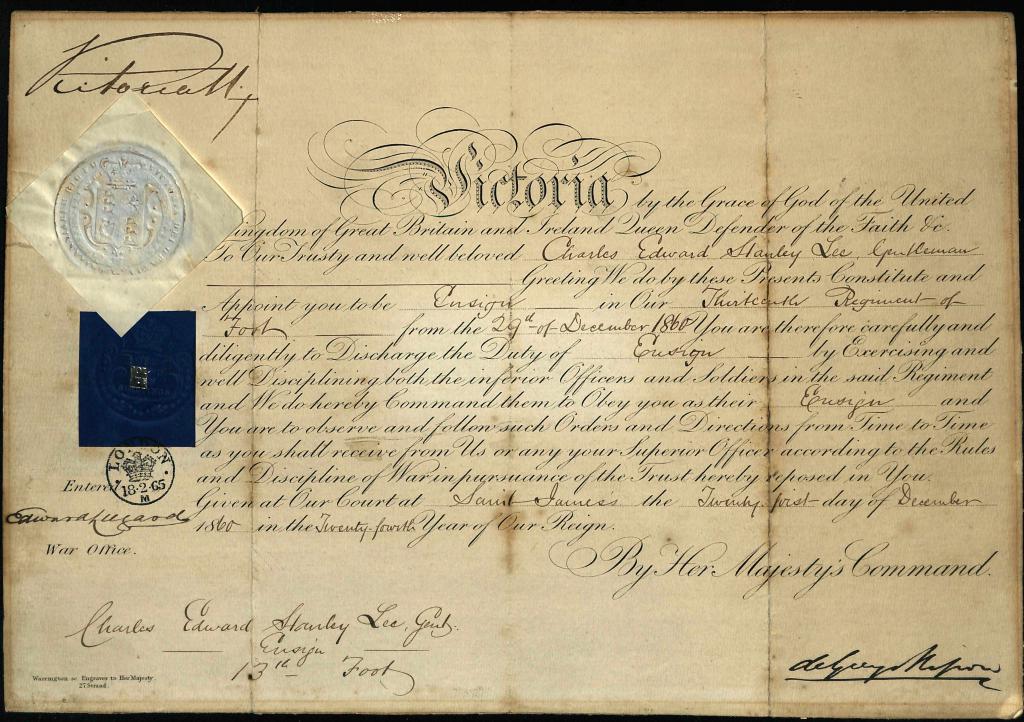 Victoria R
Victoria by the Grace of God of the United
Kingdom of Great Britain and Ireland Queen Defender of the Faith &c.
To Our Trusty and well beloved Charles Edward Stanley Lee, Gentleman
Greeting We do by these Presents Constitute and
Appoint you to be Ensign in Our Thirteenth Regiment of
Foot from the 29th of December 1860 You are therefore carefully and
diligently to Discharge the Duty of Ensign by Exercising and
well Disciplining both the inferior Officers and Soldiers in the said Regiment
and We do hereby Command them to Obey you as their Ensign and
You are to observe and follow such Orders and Directions from Time to Time
as you shall receive from Us or any your Superior Officer according to the Rules
and Discipline of War in pursuance of the Trust hereby reposed in You.
Given at Our Court at Saint James's the Twenty first day of December
1860 in the Twenty-fourth Year of Our Reign.
By Her Majesty's Command.
LONDON
18-2-65
M
Entered
Edward Lugard
War Office.
Charles Edward Stanley Lee, Gent.
Ensign
13th Foot
de Grey & Ripon
Warrington sc Engraver to Her Majesty
27 Strand.